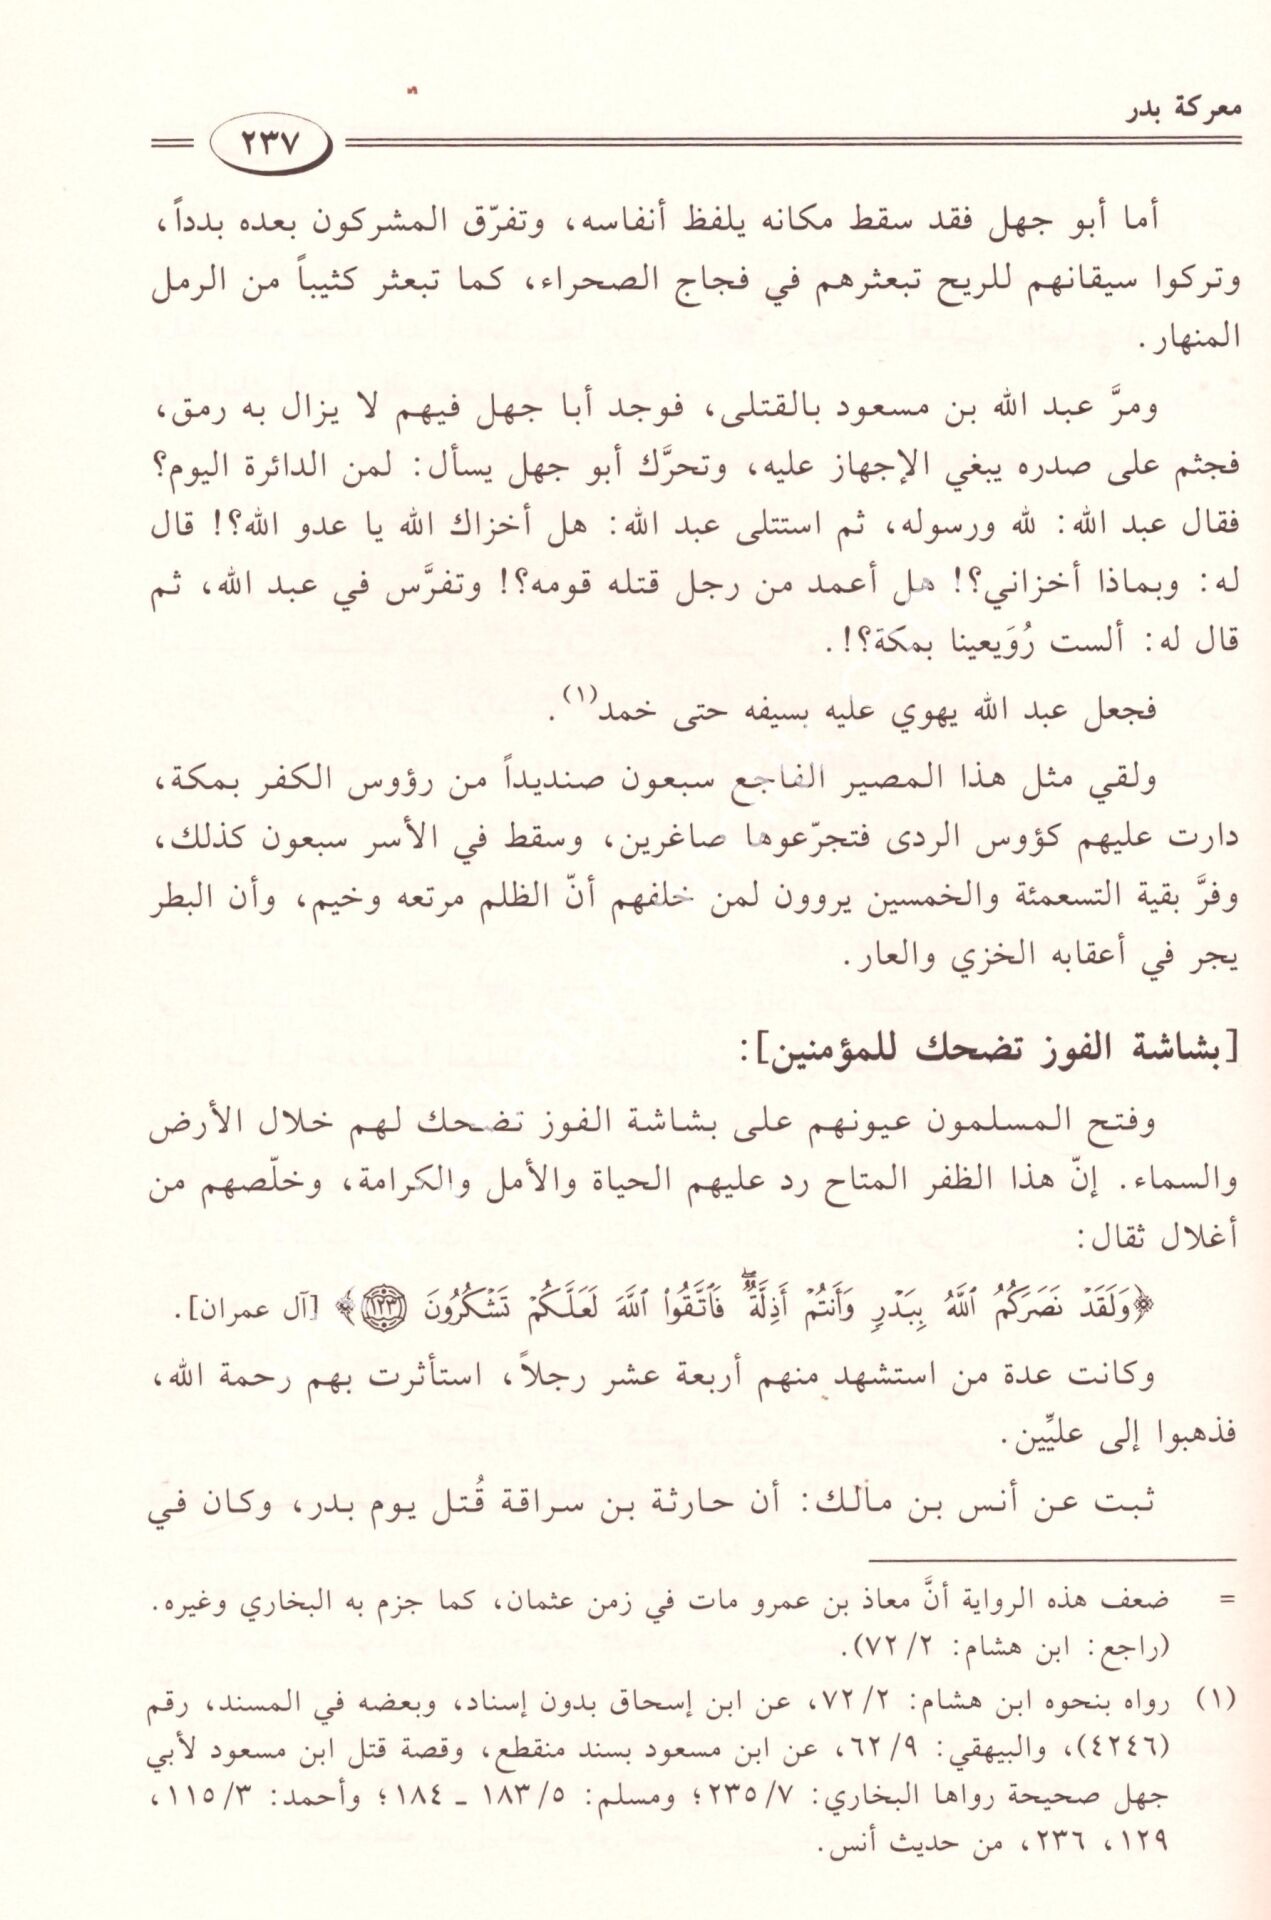 معركة بدر
٢٣٧
أما أبو جهل فقد سقط مكانه يلفظ أنفاسه، وتفرّق المشركون بعده بدداً،
وتركوا سيقانهم للريح تبعثرهم في فجاج الصحراء، كما تبعثر كثيباً من الرمل
المنهار.
ومرَّ عبد الله بن مسعود بالقتلى، فوجد أبا جهل فيهم لا يزال به رمق،
فجثم على صدره يبغي الإجهاز عليه، وتحرَّك أبو جهل يسأل: لمن الدائرة اليوم؟
فقال عبد الله: لله ورسوله، ثم استتلى عبد الله: هل أخزاك الله يا عدو الله؟! قال
له: وبماذا أخزاني؟! هل أعمد من رجل قتله قومه؟! وتفرَّس في عبد الله، ثم
قال له: ألست رُوَيعينا بمكة؟!.
فجعل عبد الله يهوي عليه بسيفه حتى خمد(١).
ولقي مثل هذا المصير الفاجع سبعون صنديداً من رؤوس الكفر بمكة،
دارت عليهم كؤوس الردى فتجرّعوها صاغرين، وسقط في الأسر سبعون كذلك،
وفرَّ بقية التسعمئة والخمسين يروون لمن خلفهم أنّ الظلم مرتعه وخيم، وأن البطر
يجر في أعقابه الخزي والعار.
[بشاشة الفوز تضحك للمؤمنين]:
وفتح المسلمون عيونهم على بشاشة الفوز تضحك لهم خلال الأرض
والسماء. إنّ هذا الظفر المتاح رد عليهم الحياة والأمل والكرامة، وخلّصهم من
أغلال ثقال:
﴿وَلَقَدْ نَصَرَكُمُ ٱللَّهُ بِبَدْرٍ وَأَنتُمْ أَذِلَّةٌۖ فَٱتَّقُوا۟ ٱللَّهَ لَعَلَّكُمْ تَشْكُرُونَ ١٢٣﴾ [آل عمران].
وكانت عدة من استشهد منهم أربعة عشر رجلاً، استأثرت بهم رحمة الله،
فذهبوا إلى عليِّين.
ثبت عن أنس بن مالك: أن حارثة بن سراقة قُتل يوم بدر، وكان في
= ضعف هذه الرواية أنَّ معاذ بن عمرو مات في زمن عثمان، كما جزم به البخاري وغيره.
(راجع: ابن هشام: ٧٢/٢).
(١) رواه بنحوه ابن هشام: ٧٢/٢، عن ابن إسحاق بدون إسناد، وبعضه في المسند، رقم
(٤٢٤٦)، والبيهقي: ٦٢/٩، عن ابن مسعود بسند منقطع، وقصة قتل ابن مسعود لأبي
جهل صحيحة رواها البخاري: ٢٣٥/٧؛ ومسلم: ١٨٣/٥ ـ ١٨٤؛ وأحمد: ١١٥/٣،
١٢٩، ٢٣٦، من حديث أنس.